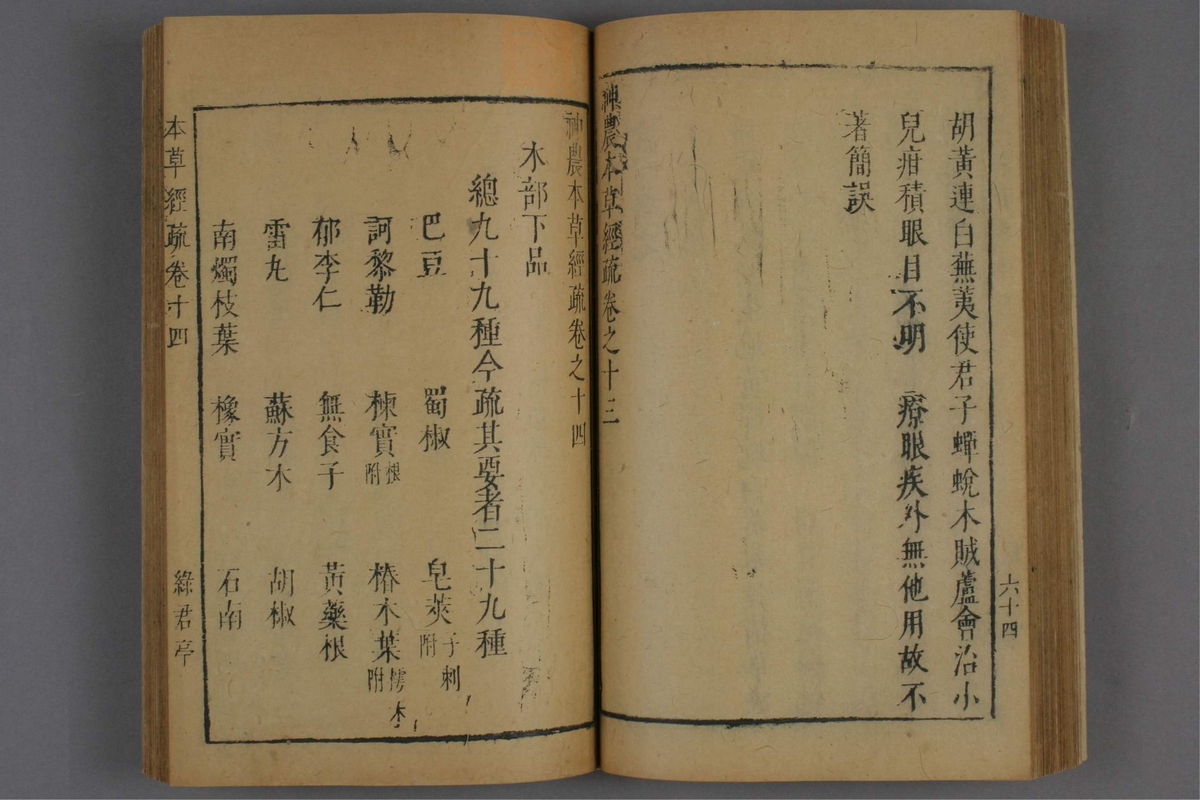 胡黃連白蕪荑使君子蟬蛻木賊蘆會治小
兒疳積眼目不明　療眼疾外無他用故不
著簡誤
神農本草經疏卷之十三
六十四
神農本草經疏卷之十四
木部下品
總九十九種今疏其要者二十九種
巴豆　蜀椒　皂莢子刺附
訶黎勒　楝實根附　椿木葉樗木附
郁李仁　無食子　黃藥根
雷丸　蘇方木　胡椒
南燭枝葉　橡實　石南
本草經疏卷十四
綠君亭